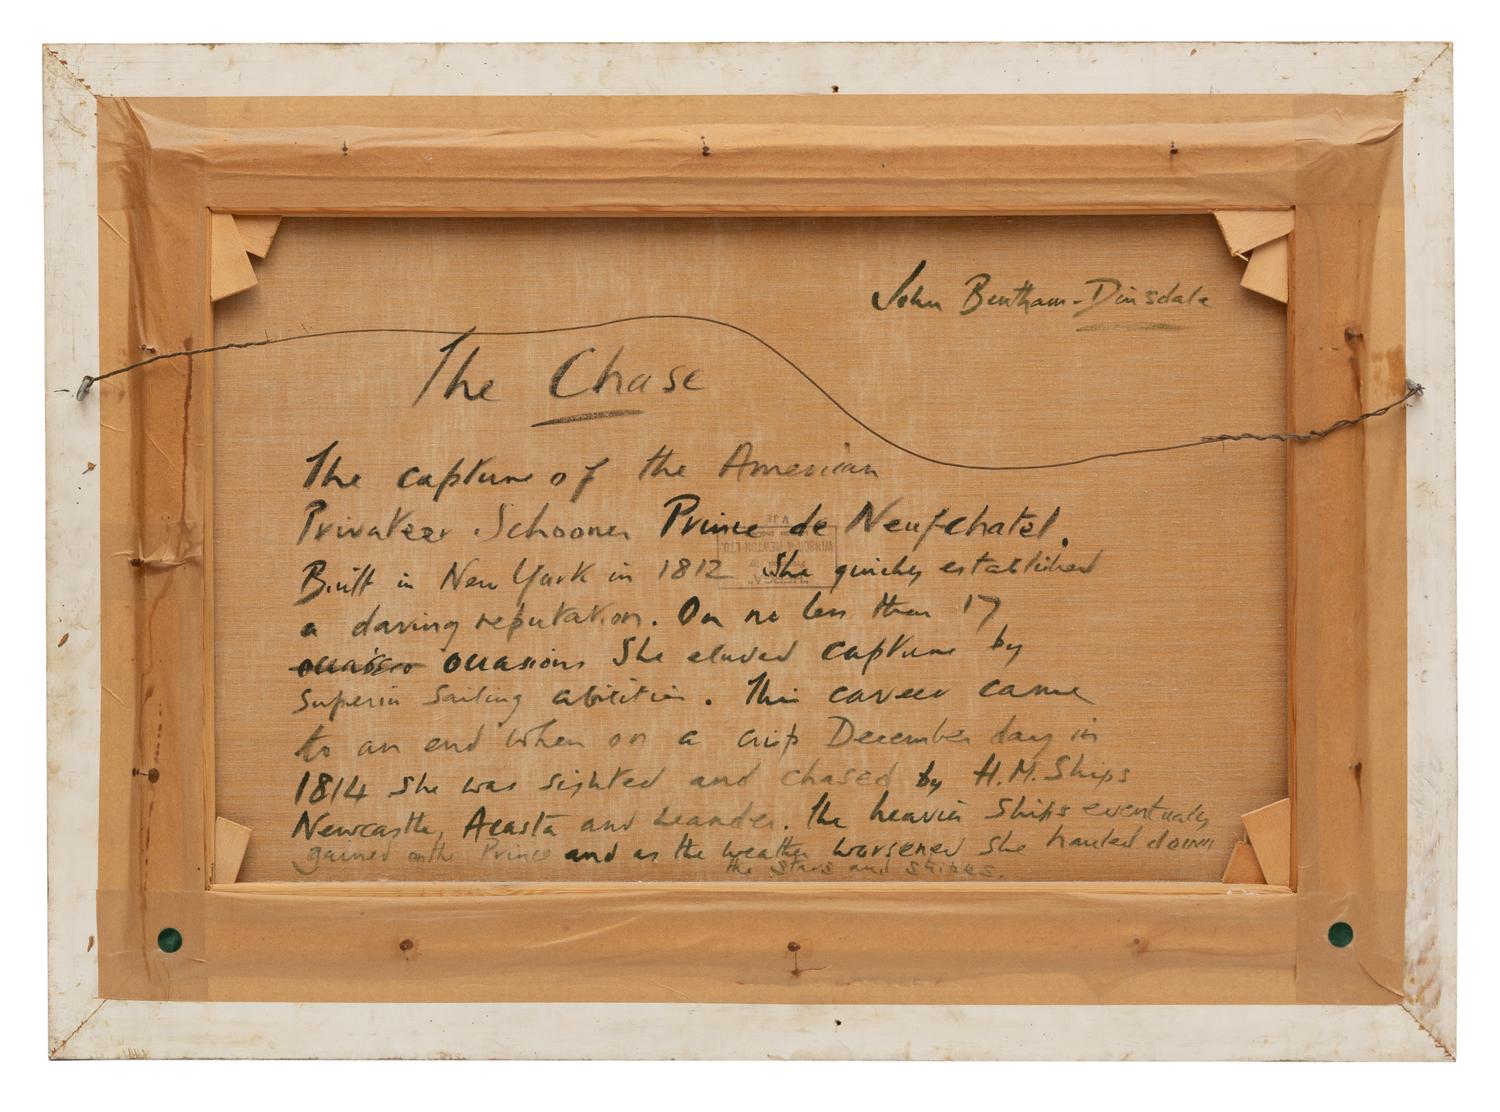 John Bentham-Dinsdale
The Chase
The capture of the American
Privateer Schooner Prince de Neufchatel.
Built in New York in 1812 She quickly established
a daring reputation. On no less than 17
occasions She eluded capture by
Superior Sailing abilities. This career came
to an end when on a crisp December day in
1814 she was sighted and chased by H.M. Ships
Newcastle, Acasta and Leander. The heavier Ships eventually
gained on the Prince and as the weather worsened she hauled down
the Stars and Stripes.
WINSOR & NEWTON LTD